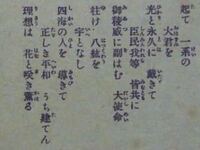 起て 一系の
大君を
光と永久に 戴きて
臣民我等 皆共に
御稜威に副はむ 大使命
往け 八紘を
宇となし
四海の人を 導きて
正しき平和 うち建てん
理想は 花と咲き薫る